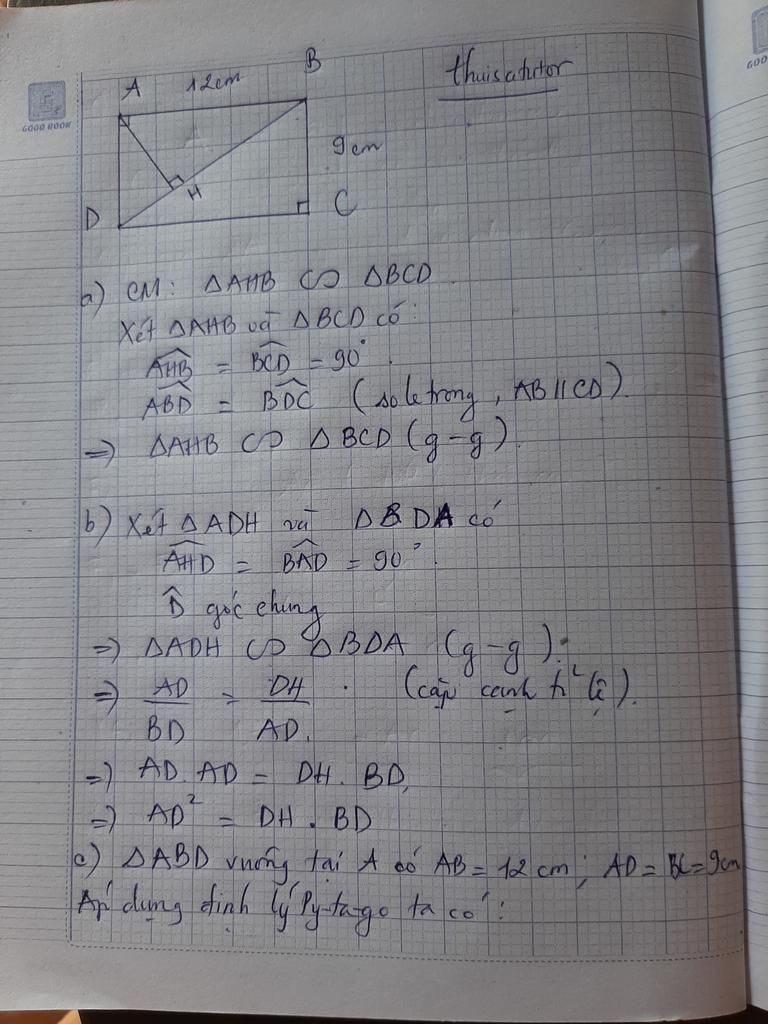 GOOD BOOK
thuisatutor
A 12cm B
9cm
H
D C
a) CM: △AHB ∽ △BCD
Xét △AHB và △BCD có:
\widehat{AHB} = \widehat{BCD} = 90°.
\widehat{ABD} = \widehat{BDC} (so le trong, AB // CD).
=> △AHB ∽ △BCD (g-g).
b) Xét △ADH và △BDA có
\widehat{AHD} = \widehat{BAD} = 90°.
\widehat{D} góc chung
=> △ADH ∽ △BDA (g-g).
=> AD/BD = DH/AD. (cặp cạnh tỉ lệ).
=> AD.AD = DH.BD,
=> AD² = DH.BD
c) △ABD vuông tại A có AB = 12 cm; AD = BC = 9cm
Áp dụng định lý Py-ta-go ta có: